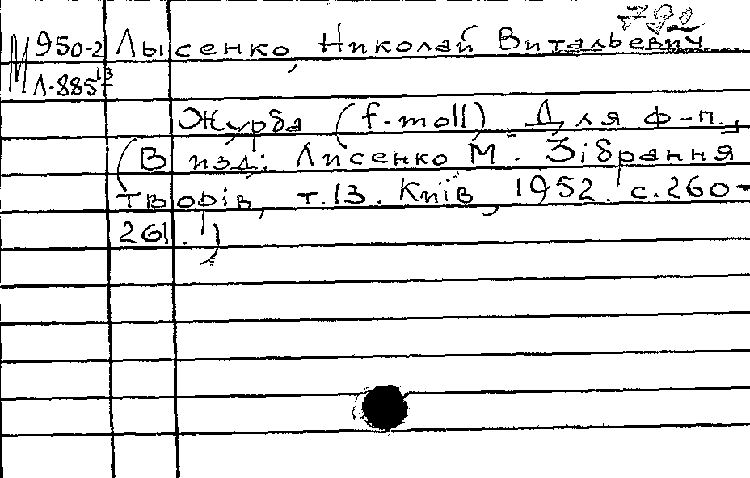 790
М 950-2 Лысенко, Николай Витальевич
Л-885 13
Журба (f-moll). Для ф-п.,
(В изд: Лисенко М. Зібрання
творів, т.13. Київ, 1952. с.260-
261.)